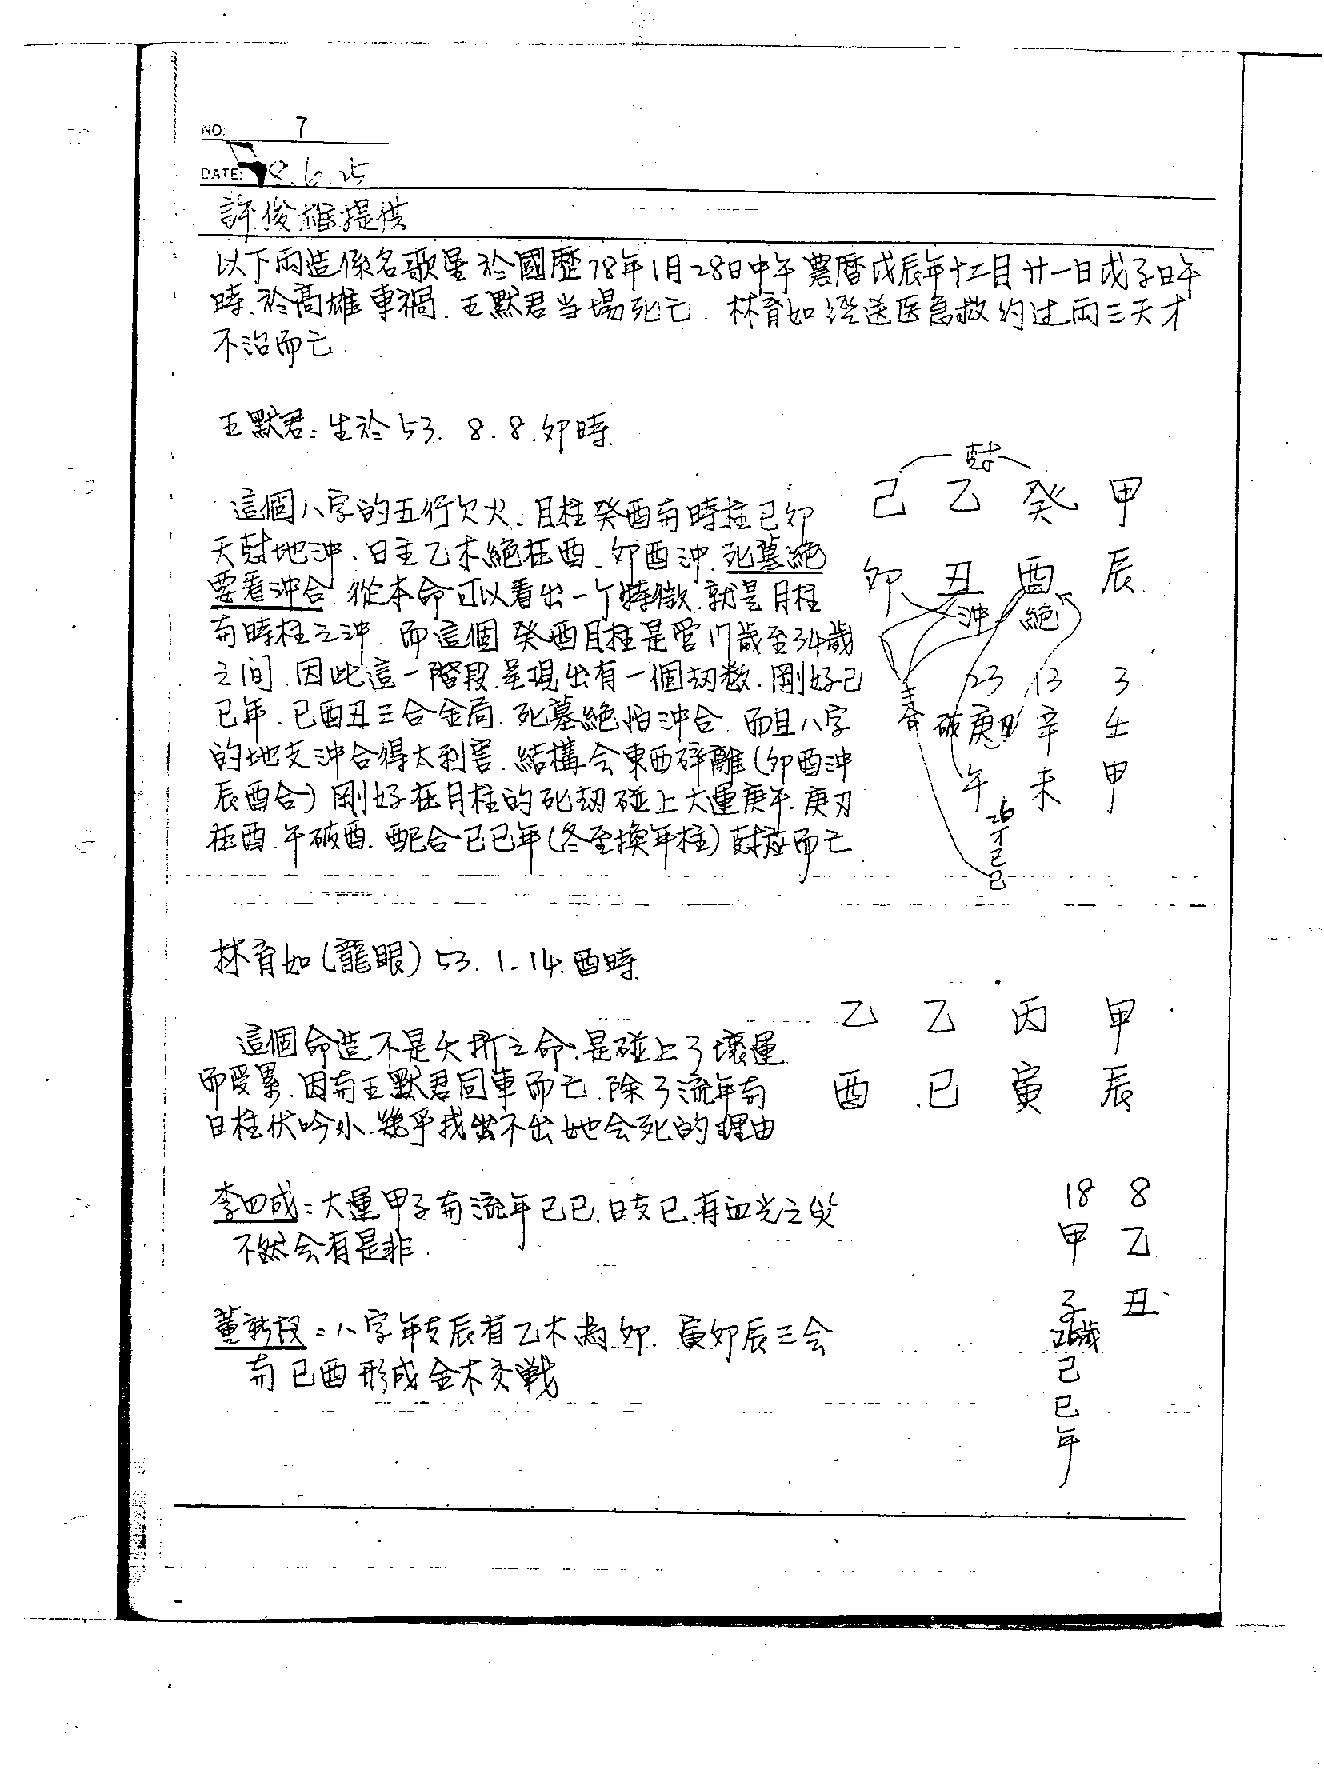 NO. 7
DATE: 78.6.25
許俊雄提供
以下兩造係名歌星於國歷78年1月28日中午農曆戊辰年十二月廿一日戊子日午
時於高雄車禍. 王默君当場死亡. 林育如經送医急救約过兩三天才
不治而亡.
王默君:生於53. 8. 8. 卯時.
這個八字的五行欠火. 月柱癸酉与時柱己卯
天尅地沖. 日主乙木絕在酉. 卯酉沖. 死墓絕
要看沖合. 從本命可以看出一个特徵. 就是月柱
与時柱之沖. 而這個癸酉月柱是管17歲至34歲
之间. 因此這一階段呈現出有一個劫数. 剛好己
巳年. 巳酉丑三合金局. 死墓絕怕沖合. 而且八字
的地支沖合得太利害. 結構会東西碎離(卯酉沖
辰酉合)剛好在月柱的死劫碰上大運庚午. 庚刃
在酉. 午破酉. 配合己巳年(冬至換年柱)尅應而亡.
尅
己 乙 癸 甲
卯 丑 酉 辰
沖 絕
23 13 3
三合 破 庚刃 辛 壬
午 未 申
26才己巳
林育如(龍眼)53. 1. 14. 酉時.
這個命造不是夭折之命. 是碰上了壞運
而受累. 因与王默君同車而亡. 除了流年与
日柱伏吟外. 幾乎找不出她会死的理由
乙 乙 丙 甲
酉 巳 寅 辰
李四成:大運甲子与流年己巳. 日支巳. 有血光之災
不然会有是非.
18 8
甲 乙
子 丑
26歲
己
巳
年
董新段:八字年支辰有乙木為卯. 寅卯辰三会
与巳酉形成金木交戰